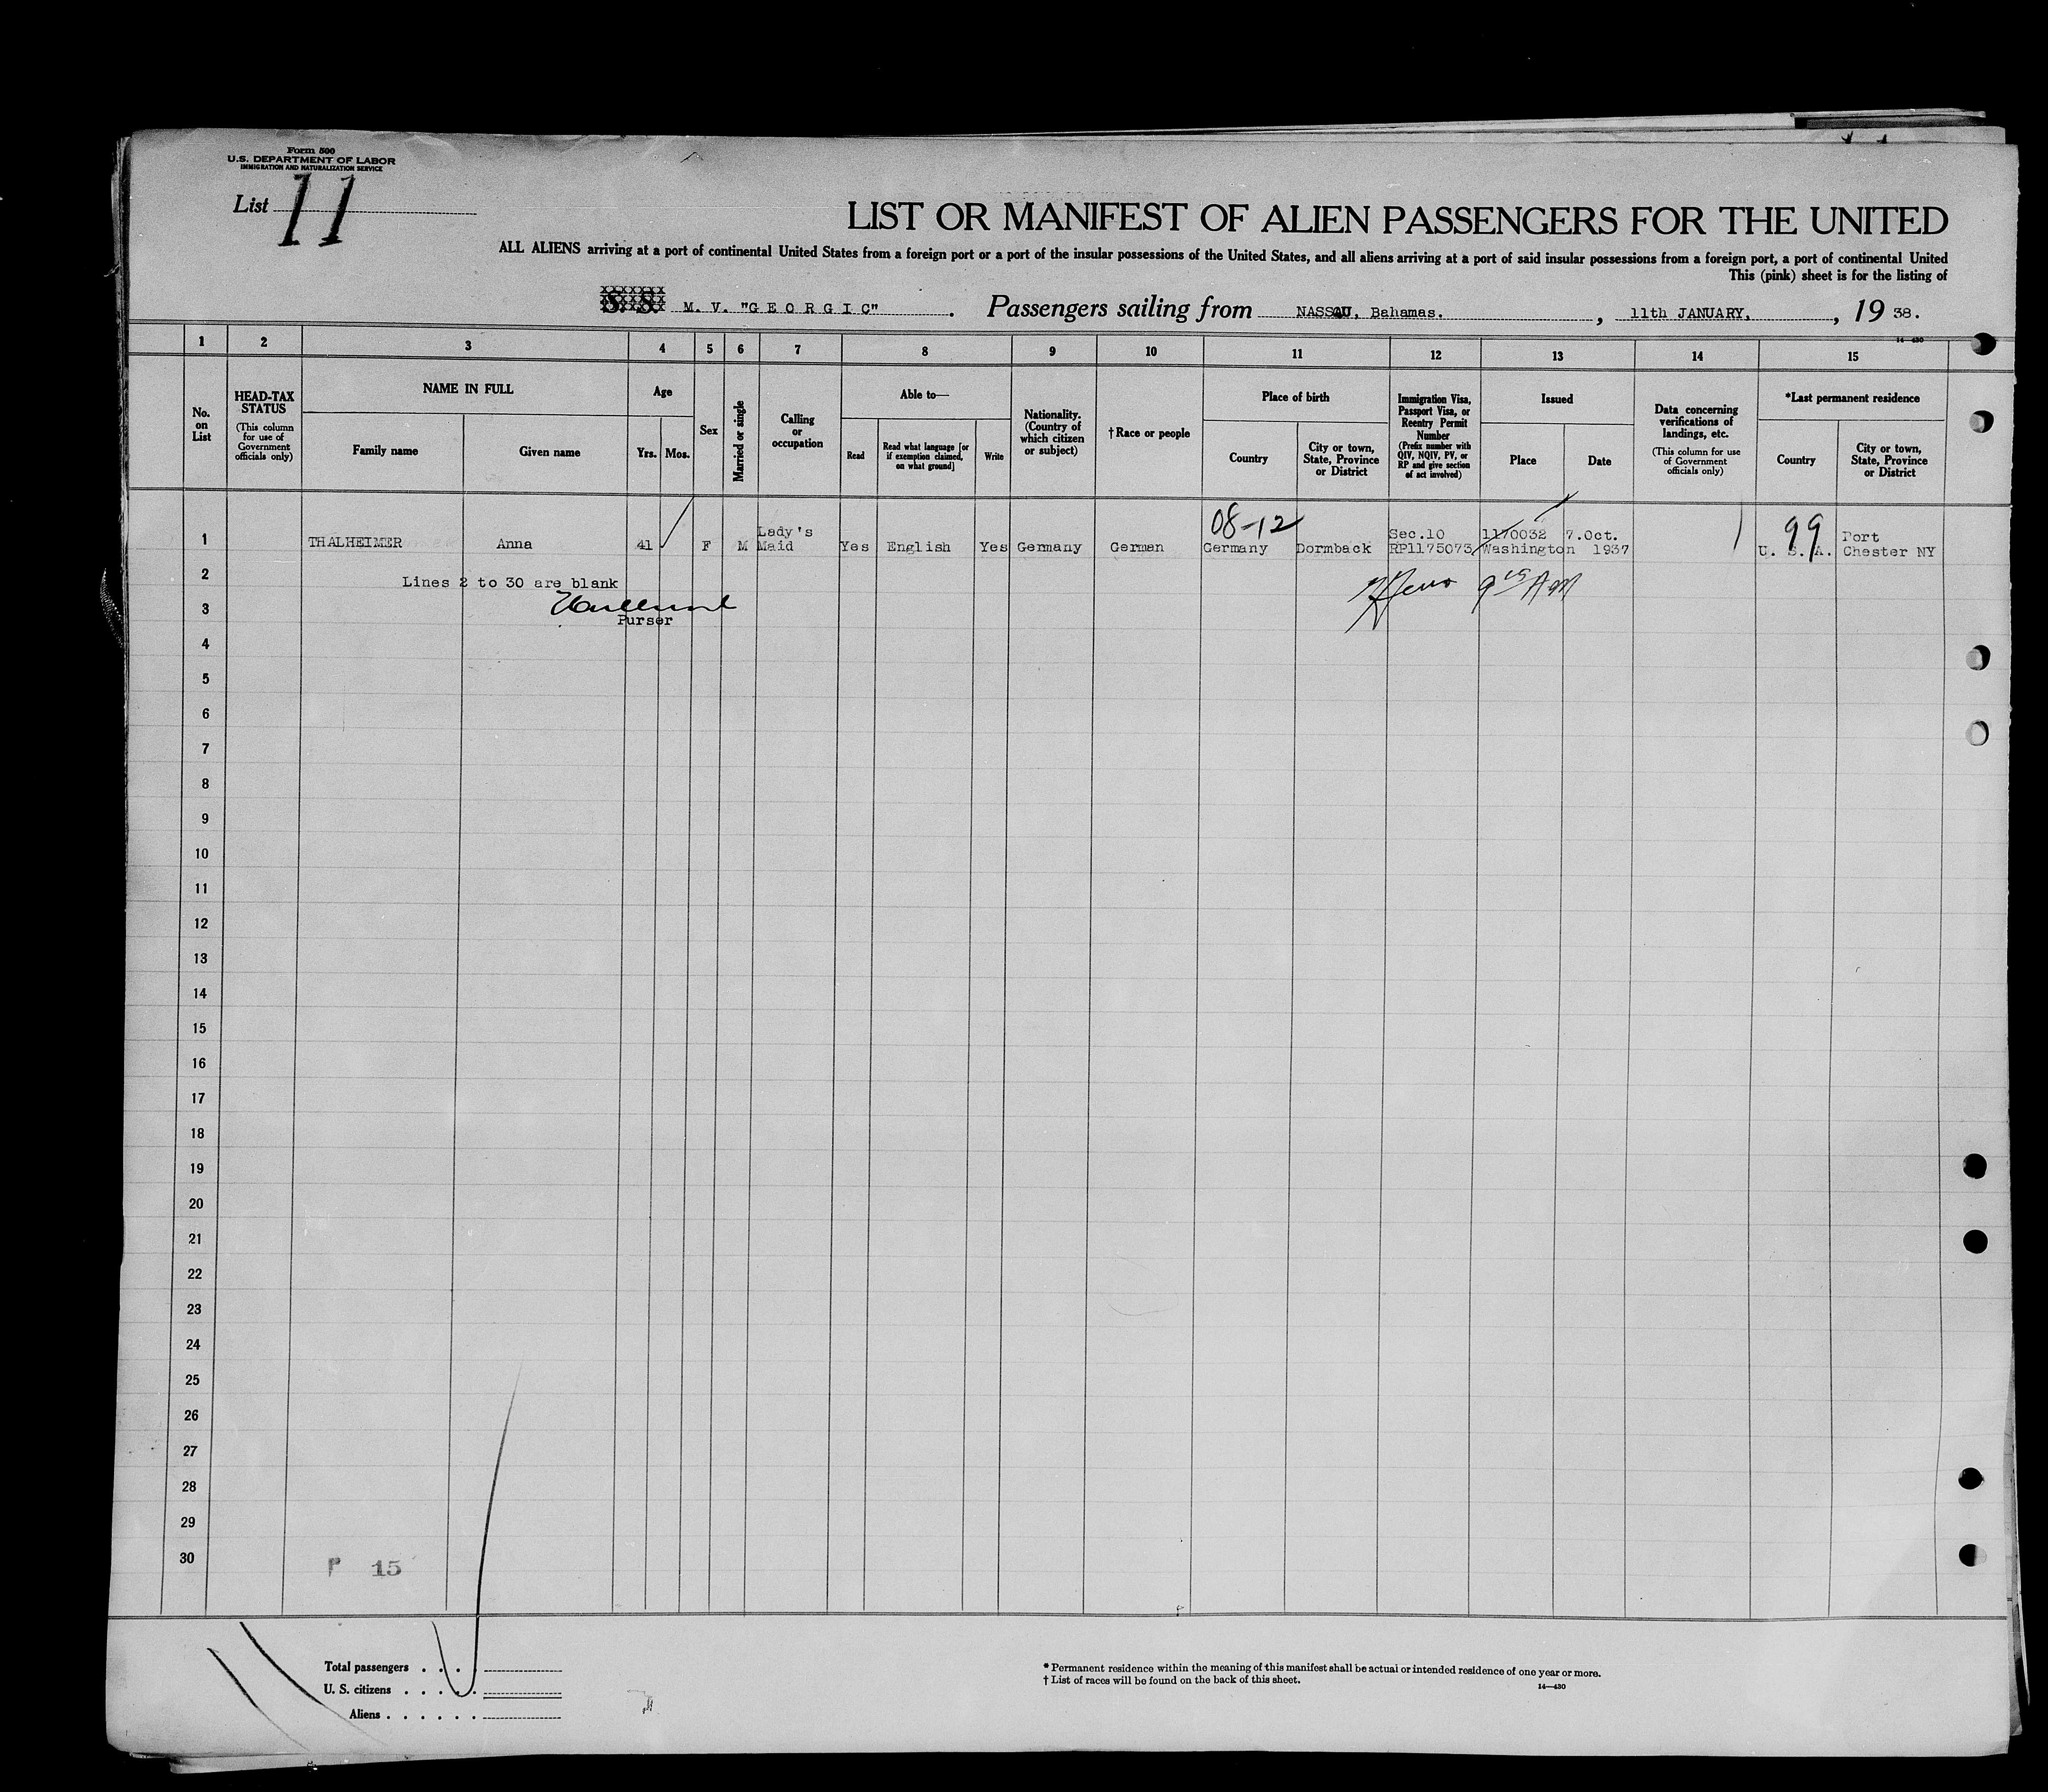 Form 500
U.S. DEPARTMENT OF LABOR
IMMIGRATION AND NATURALIZATION SERVICE
List 11
LIST OR MANIFEST OF ALIEN PASSENGERS FOR THE UNITED
ALL ALIENS arriving at a port of continental United States from a foreign port or a port of the insular possessions of the United States, and all aliens arriving at a port of said insular possessions from a foreign port, a port of continental United
This (pink) sheet is for the listing of
S. S. M. V. "GEORGIC". Passengers sailing from NASSAU, Bahamas. , 11th JANUARY, , 19 38.
14-430
1 2 3 4 5 6 7 8 9 10 11 12 13 14 15
No. on List
HEAD-TAX STATUS
(This column for use of Government officials only)
NAME IN FULL
Family name
Given name
Age
Yrs.
Mos.
Sex
Married or single
Calling or occupation
Able to—
Read
Read what language [or if exemption claimed, on what ground]
Write
Nationality. (Country of which citizen or subject)
†Race or people
Place of birth
Country
City or town, State, Province or District
Immigration Visa, Passport Visa, or Reentry Permit Number
(Prefix number with QIV, NQIV, PV, or RP and give section of act involved)
Issued
Place
Date
Data concerning verifications of landings, etc.
(This column for use of Government officials only)
*Last permanent residence
Country
City or town, State, Province or District
08-12
99
Lady's Sec.10 1170032 7.Oct. Port
1 THALHEIMER Anna 41 F M Maid Yes English Yes Germany German Germany Dormback RP1175073 Washington 1937 U. S. A. Chester NY
2 Lines 2 to 30 are blank
3
Purser
4
5
6
7
8
9
10
11
12
13
14
15
16
17
18
19
20
21
22
23
24
25
26
27
28
29
30
P 15
Total passengers . . . .
U. S. citizens . . . . .
Aliens . . . . . .
*Permanent residence within the meaning of this manifest shall be actual or intended residence of one year or more.
†List of races will be found on the back of this sheet.
14—430